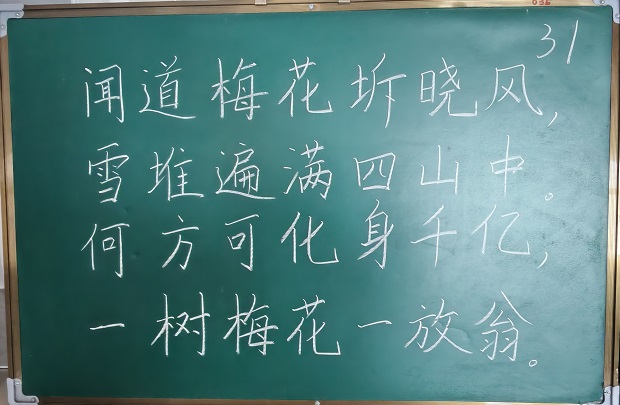 31
闻道梅花坼晓风,
雪堆遍满四山中。
何方可化身千亿,
一树梅花一放翁。